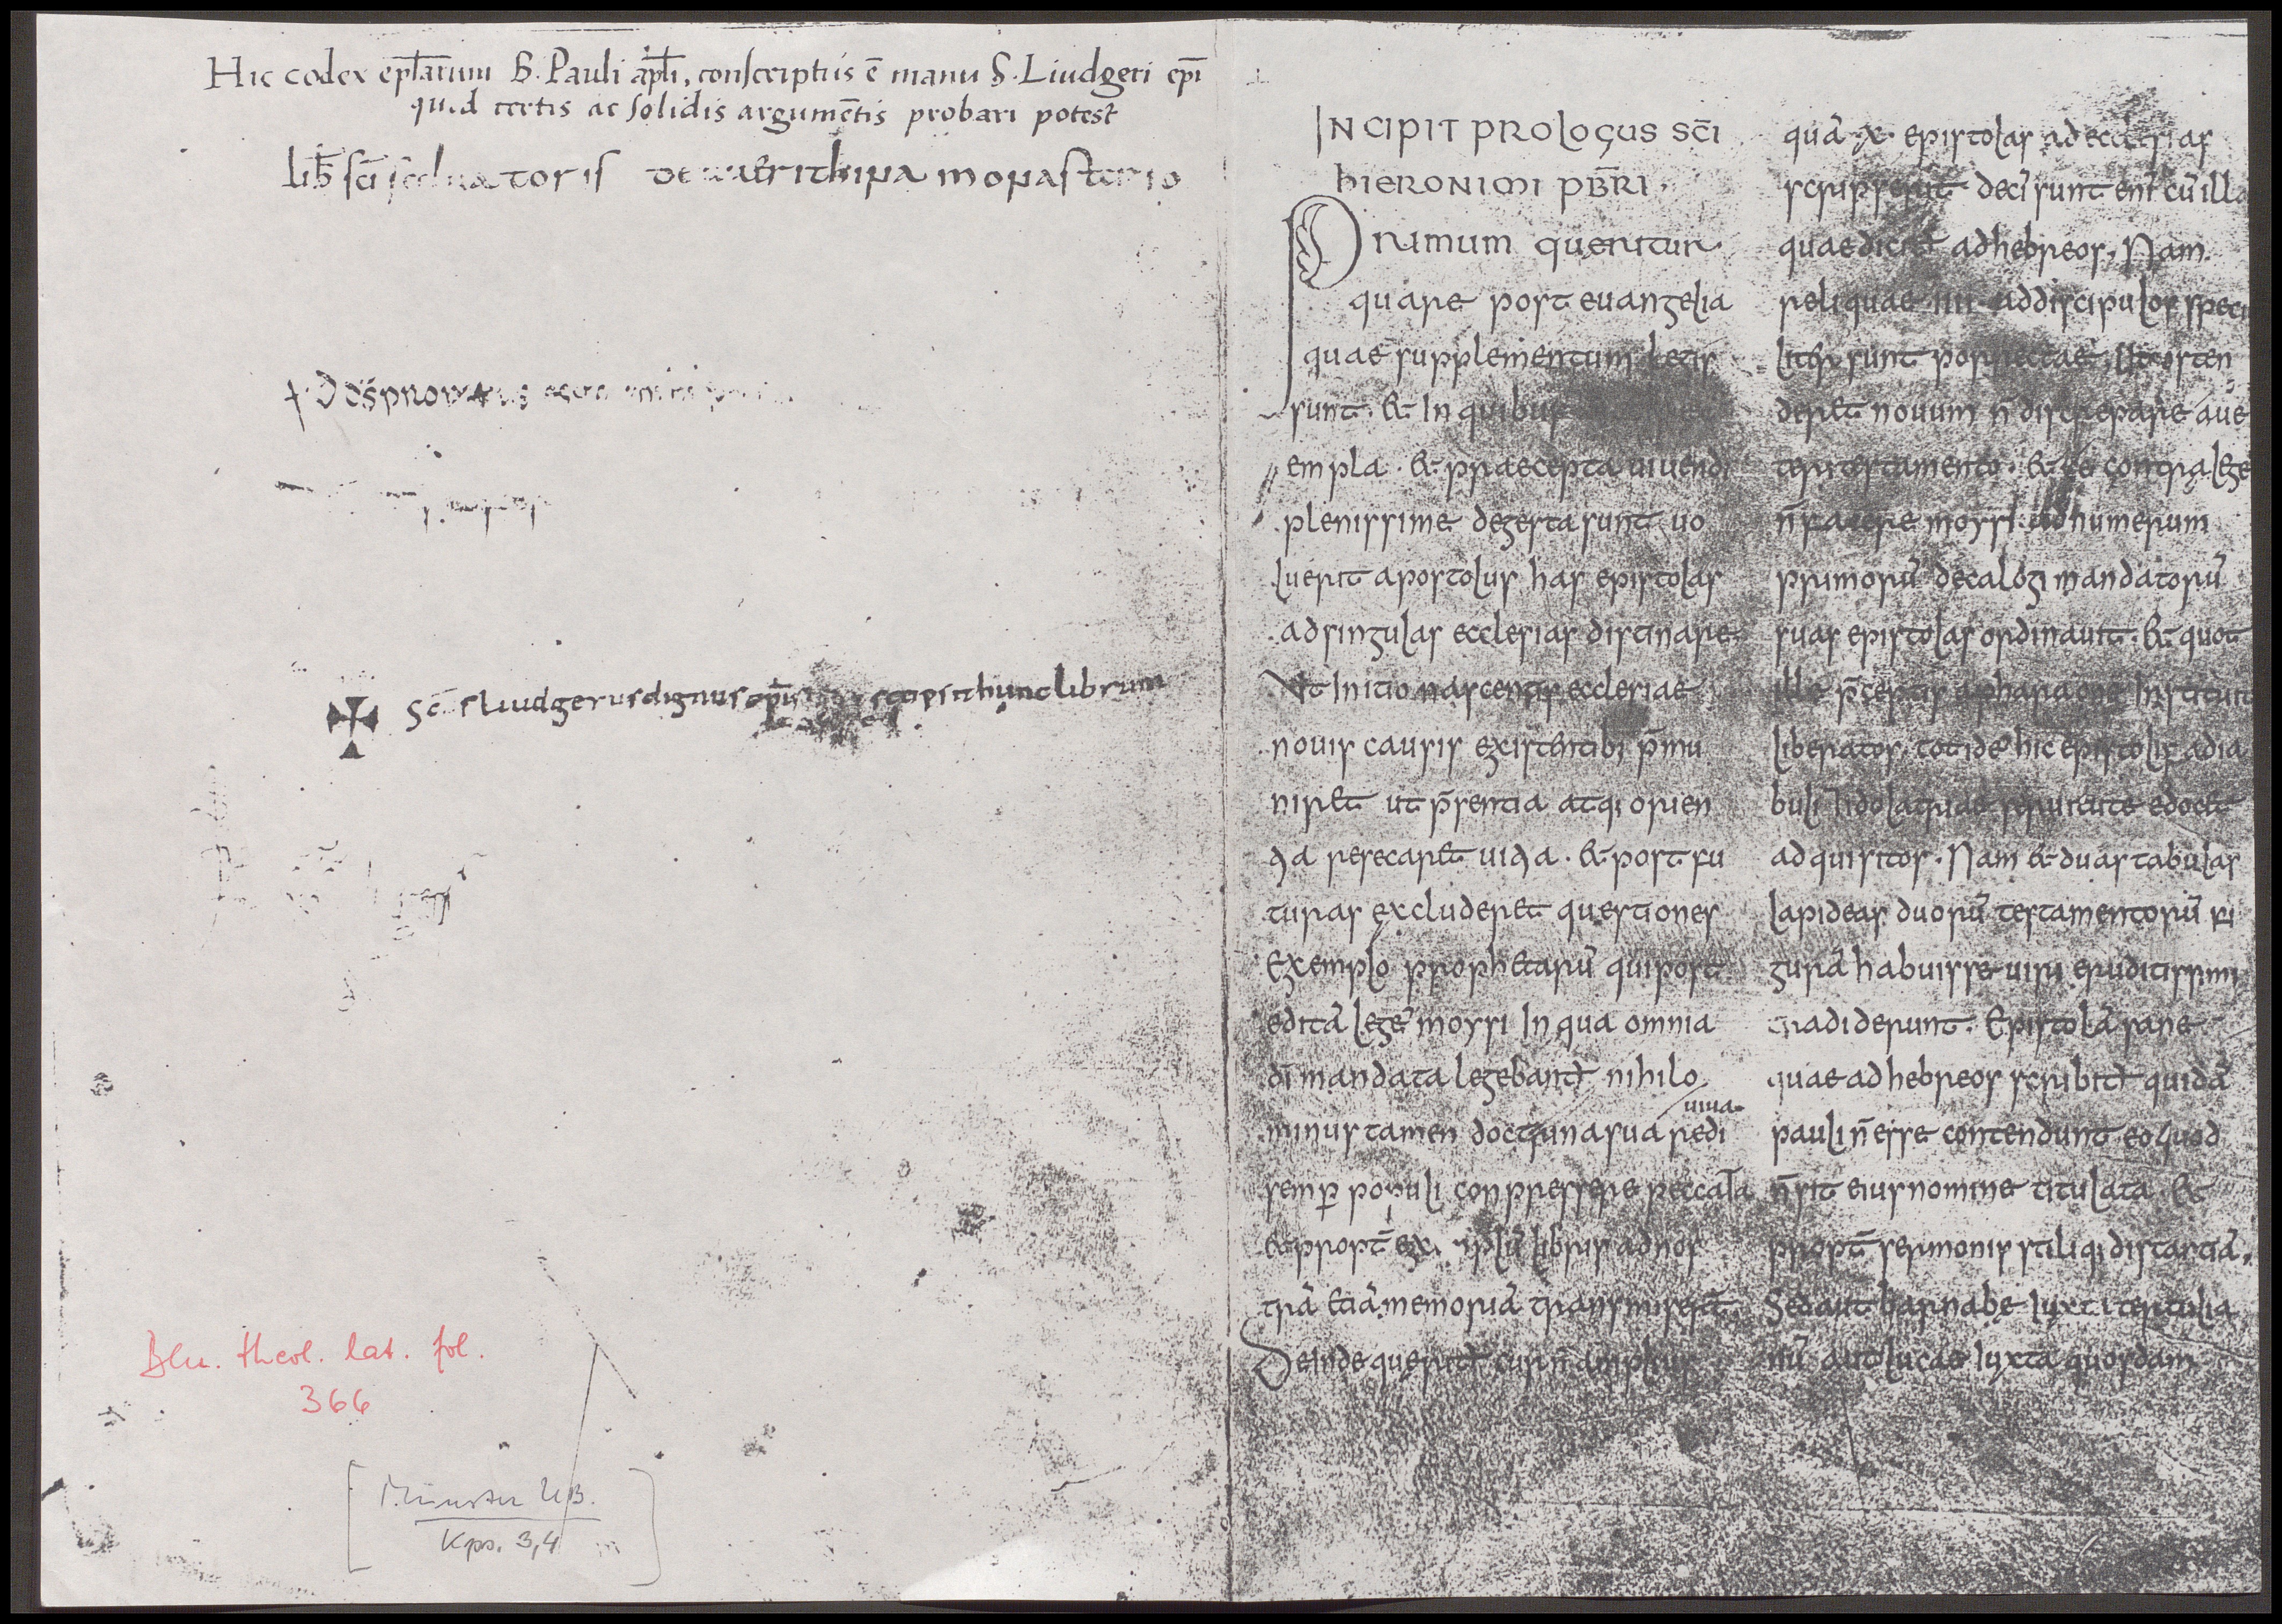 Hic codex epl̄arum B. Pauli apl̄i, conscriptus ē manu S. Liudgeri epī
quod certis ac solidis argumētis probari potest
lib̄ sc̄i saluatoris de uuerithina monasterio
Sc̄s liudgerus dignus ep̄is scripsit hunc librum
Blu. theol. lat. fol.
366
[Münster UB.
Kps. 3,4]
INCIPIT PROLOGUS SC̄I
HIERONIMI PB̄RI.
Primum queritur
quare post euangelia
quae supplementum legis
sunt. & In quibus
empla. & praecepta uiuendi
plenissime degesta sunt uo
luerit apostolus has epistolas
ad singulas ecclesias distinare.
Ut Initio nascentis ecclesiae
nouis causis existentib; p̄mu
niret ut p̄sentia atq; orien
tia resecaret uitia. & post fu
turas excluderet questiones
Exemplo prophetarū qui post
editā legē moysi In qua omnia
dī mandata legebant̄ nihilo
minus tamen doctrina sua rediuiua
semp̄ populi conpressere peccata
& propt̄ exēplū libris ad nos
trā etiā memoriā transmiserunt
Deinde querit̄ cur n̄ amplius
quā x. epistolas ad ecclesias
scripserit decē sunt enī cū illa
quae dicit̄ ad hebreos. Nam
reliquae IIII ad discipulos speci
alit̄ sunt porrectae. Ut osten
deret nouum n̄ discrepare a ue
teri testamento. & se contra legē
n̄ facere moysi. ad numerum
primorū decalogi mandatorū
suas epistolas ordinauit. & quot
ille p̄ceptis a pharaone Instituit
liberatos. totidē hic epistolis a dia
buli & idolatriae seruitute edocet
adquisitos. Nam & duas tabulas
lapideas duorū testamentorū fi
gurā habuisse uiri eruditissimi
tradiderunt. Epistolā sane
quae ad hebreos scribit̄ quidā
pauli n̄ esse contendunt eo quod
n̄ sit eius nomine titulata. &
propt̄ sermonis stiliq; distantiā.
Sed aut barnabę Iuxta tertulia
nū aut lucae Iuxta quosdam